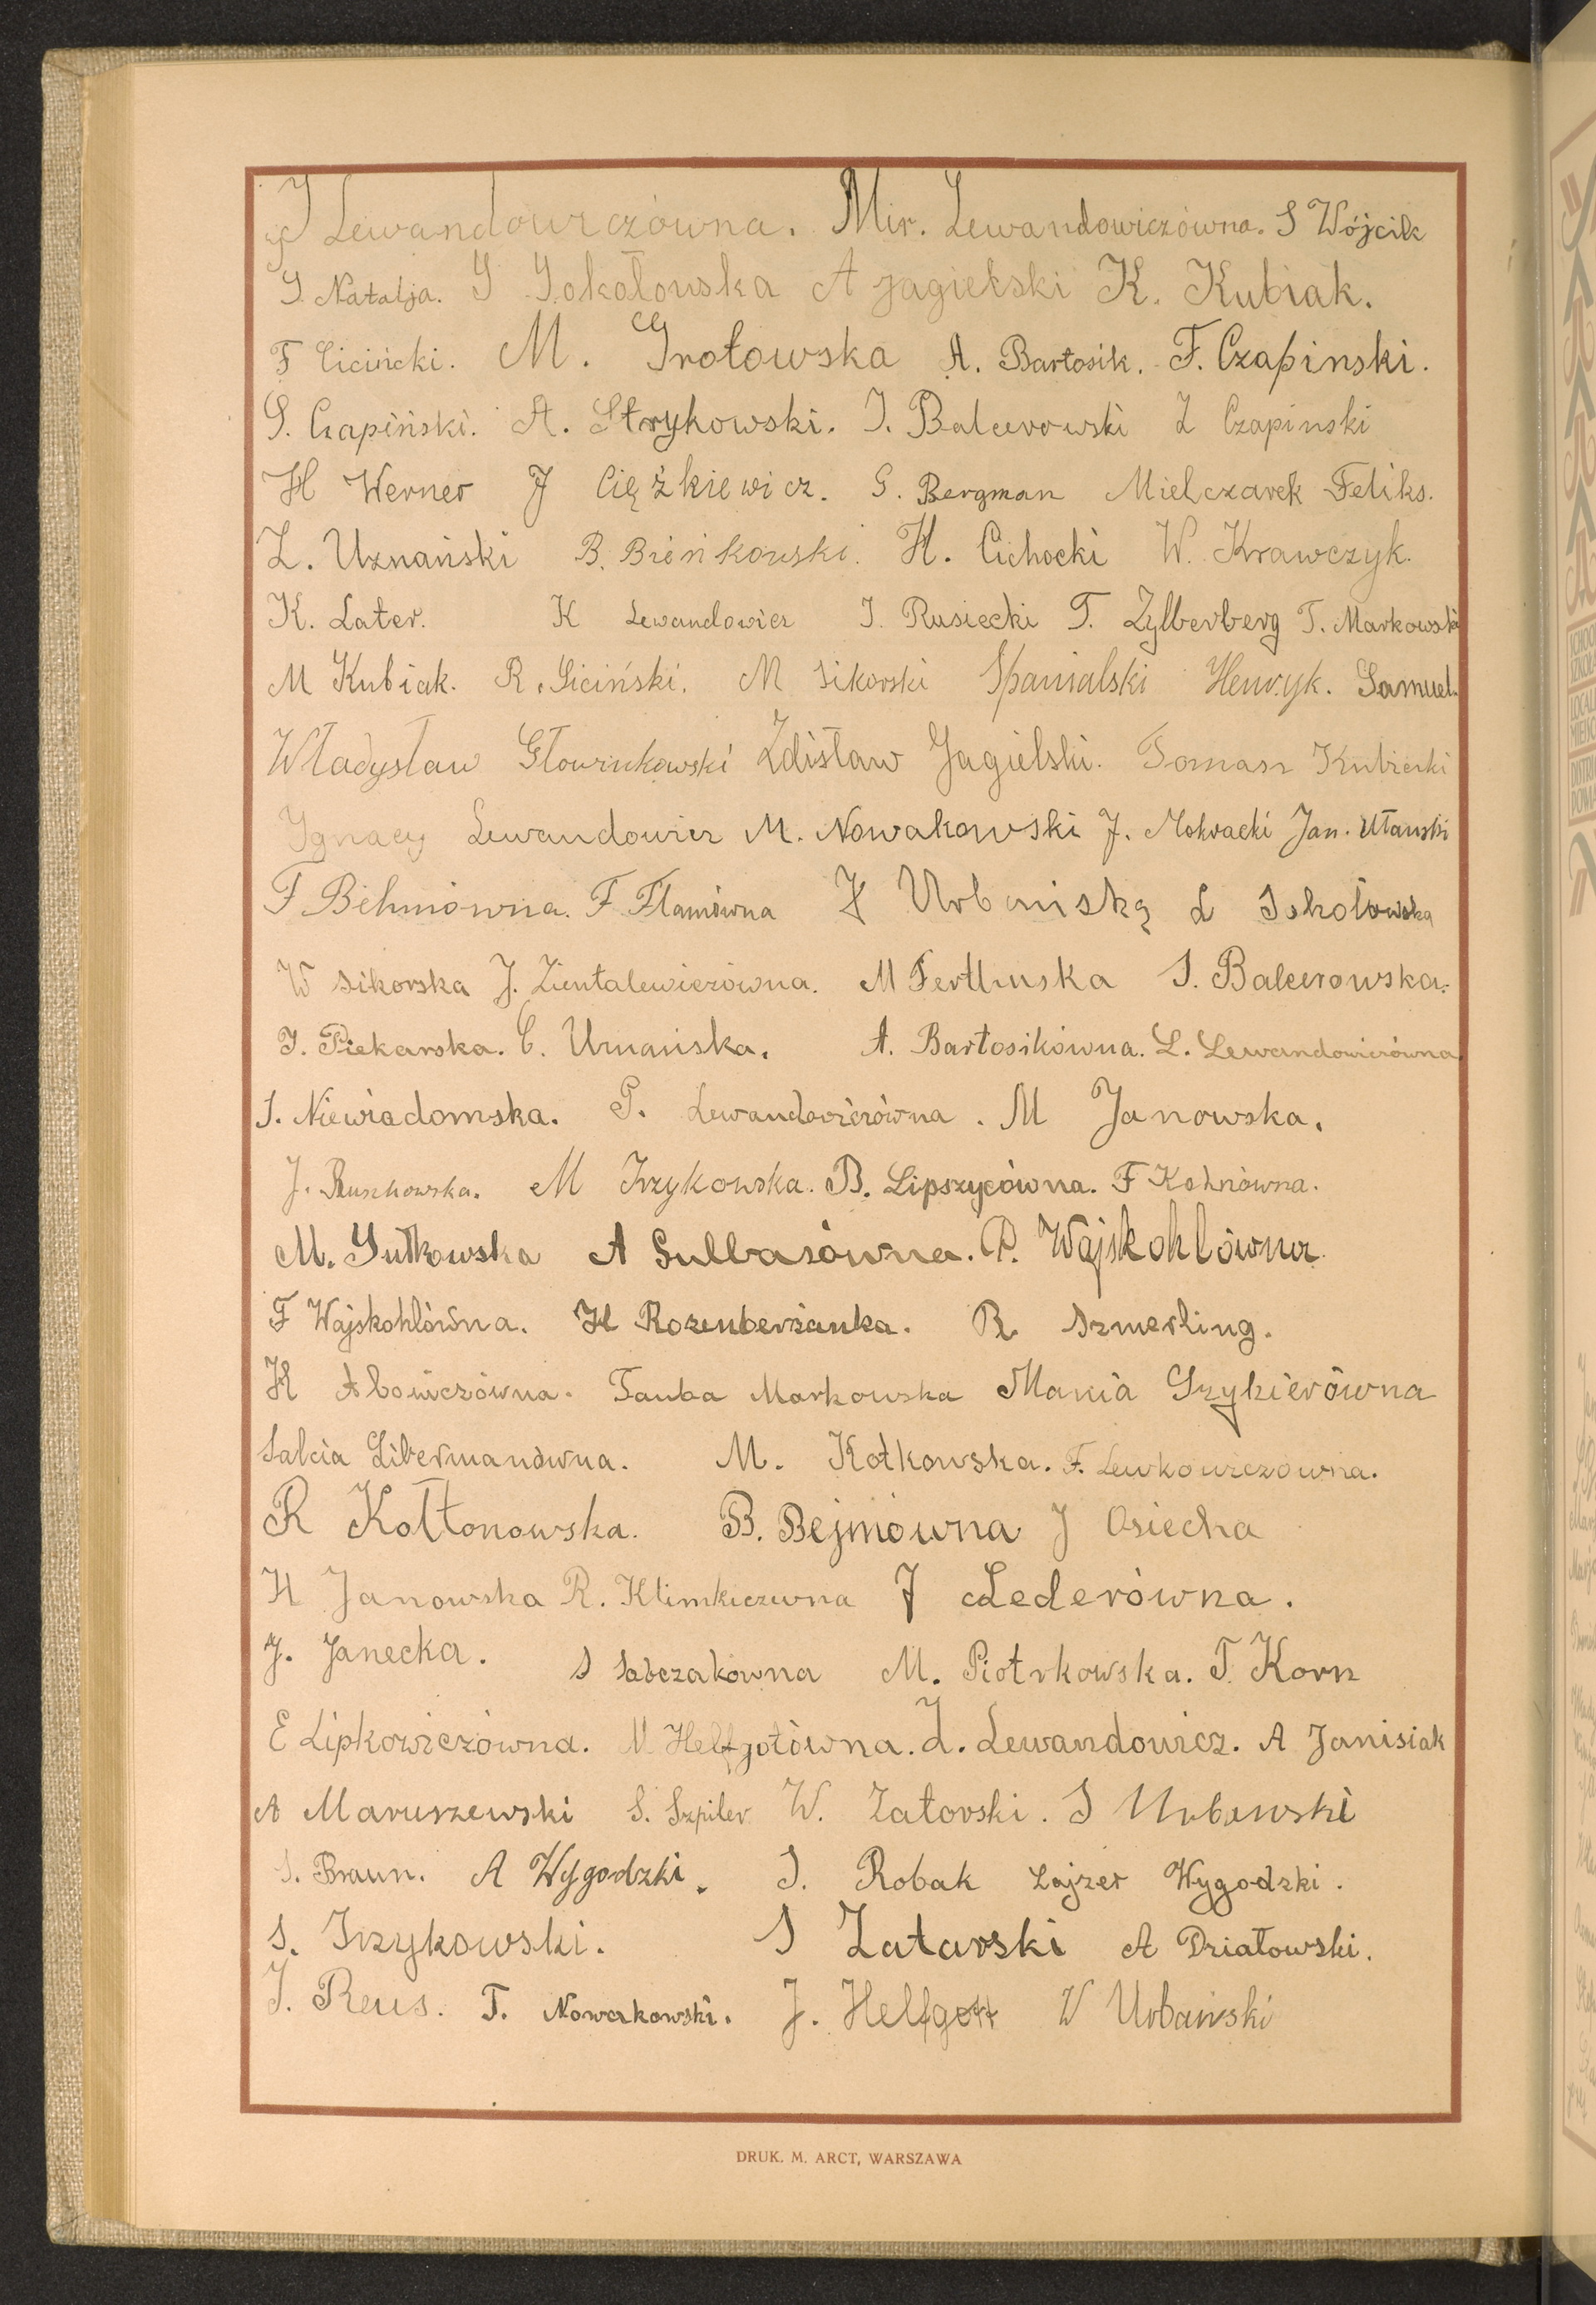 J Lewandowiczówna. Mir. Lewandowiczówna. S Wójcik
J. Natalja. S Sokołowska A Jagielski K. Kubiak.
F Ciciński. M. Grotowska A. Bartosik. F. Czapinski.
S. Czapiński. A. Strykowski. J. Balcerowski Z Czapinski
H Werner J Ciężkiewicz. G. Bergman Mielczarek Feliks.
Z. Uznański B. Bieńkowski. H. Cichocki W. Krawczyk.
K. Later. K Lewandowicz J. Rusiecki T. Zylberberg T. Markowski
M Kubiak. R. Siciński. M Sikorski Spanialski Henryk. Samuel.
Władysław Zdisław Jagielski. Tomasz Kubicki
Ignacy Lewandowicz M. Nowakowski J. Mokracki Jan. Ułański
F Behmówna. F Flamówna J Urbańską L Sokołowska
W Sikorska J. Zientalewiczówna. M S. Balcerowska.
J. Piekarska. C. Umańska. A. Bartosikówna. L. Lewandowiczówna.
J. Niewiadomska. P. Lewandowiczówna. M Janowska.
J. M Irzykowska. B. Lipszycówna. F Kohnówna.
M. Gutkowska A Sulbasówna. P. Wajskohlówna.
F Wajskohlówna. H Rozenberżanka. R Szmerling.
H Abowiczówna. Tauba Markowska Mania Szykierówna
Salcia Libermanówna. M. Kotkowska. F. Lewkowiczowna.
R Kołtonowska. B. Bejmówna J Osiecka
H Janowska R. Klimkiczewna J Lederówna.
J. Janecka. S Sobczakówna M. Piotrkowska. T. Korn
E Lipkowiczówna. M Helfgotówna. Z. Lewandowicz. A Janisiak
A Maruszewski S. Szpiler W. Zatorski. S Urbanski
S. Braun. A Wygodzki. J. Robak Lajzer Wygodzki.
S. Irzykowski. S Zatarski A Działowski.
J. Reus. T. Nowakowski. J. Helfgott W Urbański
DRUK. M. ARCT, WARSZAWA